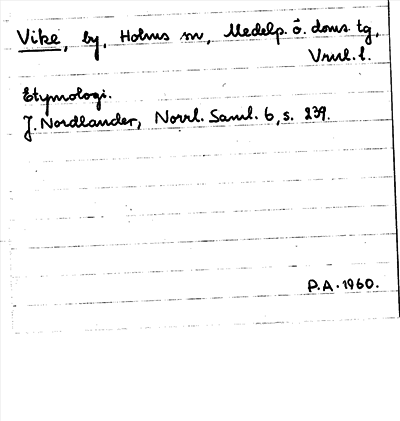 Vike, by, Holms sn, Medelp. ö. doms. tg,
Vnrl. l.
Etymologi.
J. Nordlander, Norrl. Saml. 6, s. 239.
P.A. 1960.